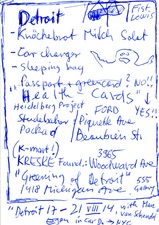 Detroit
Fist.
Louis
- Knöchebrot Milch Salat
- Car charger
- sleeping bag
"Passport + greencard? NO!!
"Health Cards" YES!!
Heidelberg Project FORD
Studebaker Piquette Ave
Packard Beaubien St.
(K-mart!) 3365
KRESKE Found. Woodward Ave
"Greening of Detroit" 555
1418 Michigan Ave
"Detroit 17 - 21 VIII 14 with